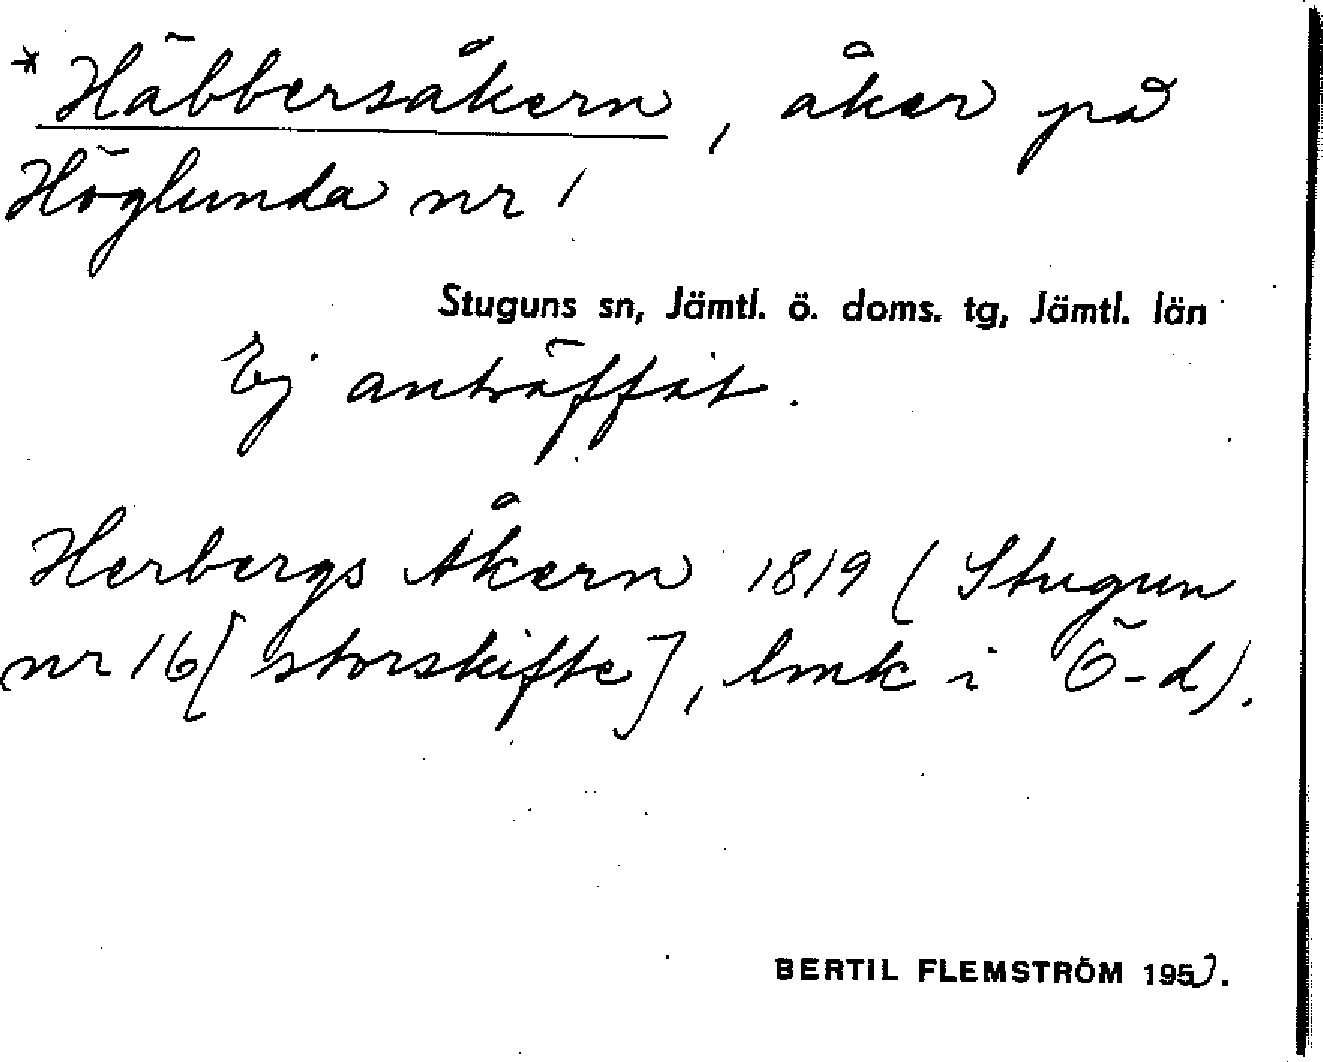 * Häbbersåkern, åker på
Höglunda nr 1
Stuguns sn, Jämtl. ö. doms. tg, Jämtl. län
Ej anträffat.
Herbergs Åkern 1819 (Stugun
nr 16 [storskifte], lmk i Ö-d).
BERTIL FLEMSTRÖM 195